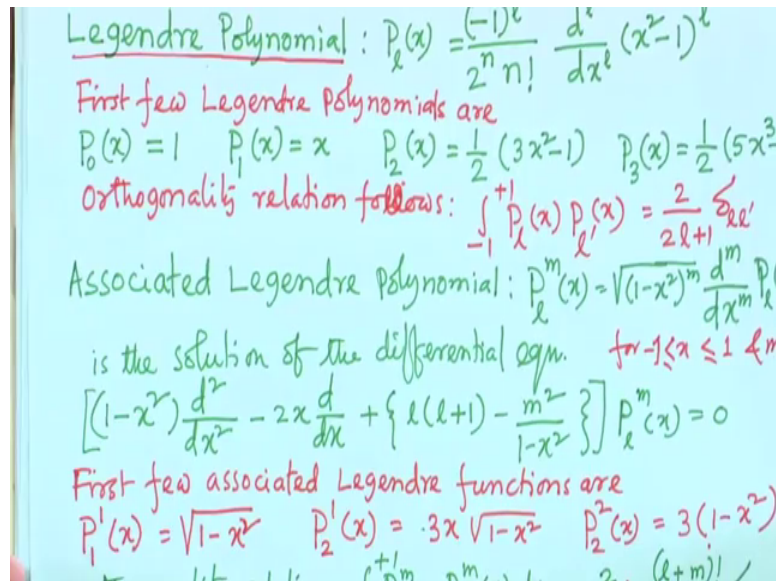 Legendre Polynomial : P_l(x) = (-1)^l / 2^n n! d^l/dx^l (x²-1)^l
First few Legendre Polynomials are
P_0(x) = 1 P_1(x) = x P_2(x) = 1/2 (3x²-1) P_3(x) = 1/2 (5x³-
Orthogonality relation follows: ∫_{-1}^{+1} P_l(x) P_l'(x) = 2/(2l+1) δ_ll'
Associated Legendre Polynomial : P_l^m(x) = √(1-x²)^m d^m/dx^m P_l(
is the solution of the differential eqn. for -1≤x≤1 & m
[(1-x²) d²/dx² - 2x d/dx + {l(l+1) - m²/(1-x²)}] P_l^m(x) = 0
First few associated Legendre functions are
P_1^1(x) = √(1-x²) P_2^1(x) = 3x √(1-x²) P_2^2(x) = 3(1-x²)